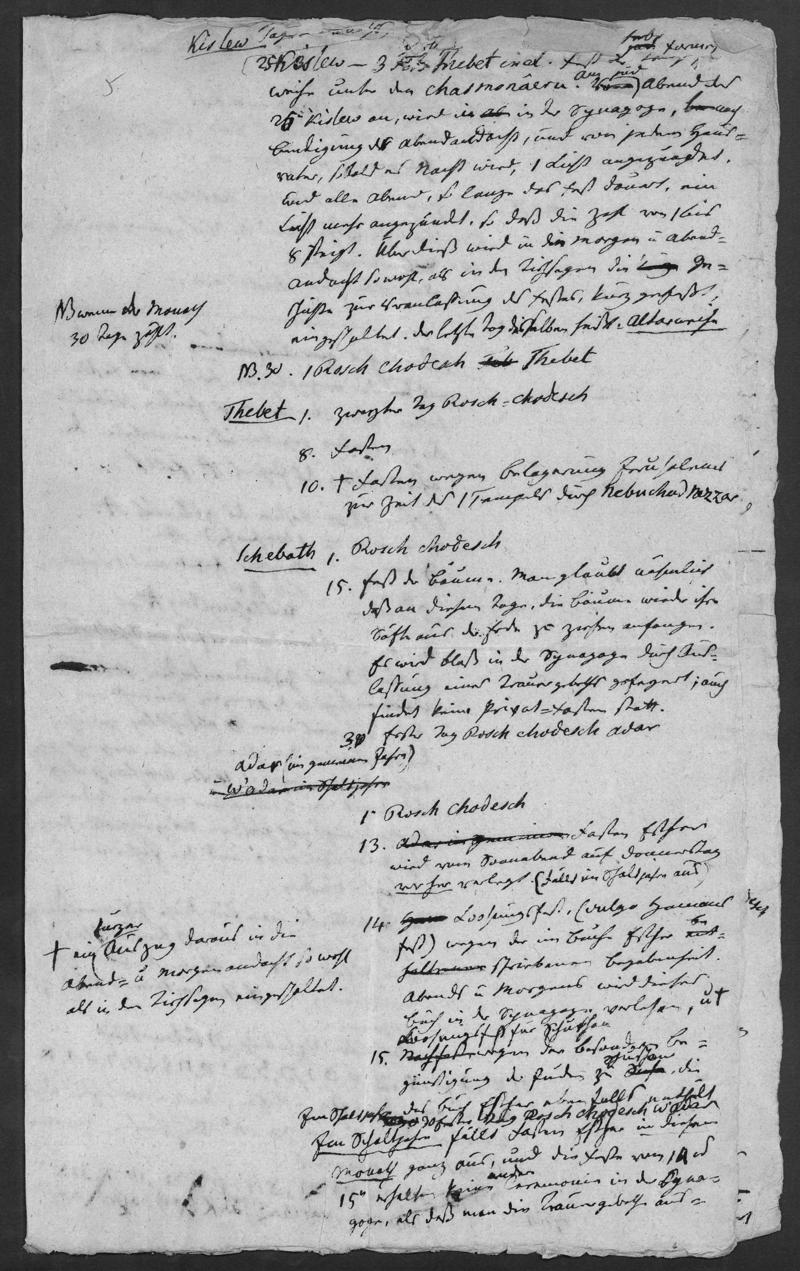 Kislew
25 Kislew – 3 Thebet incl. Fest der
weihe unter den Chasmonäern. Abend des
25 Kislew an, wird in der Synagoge, nach
Beendigung der Abendandacht, und von jedem Haus=
vater, sobald es Nacht wird, 1 Licht angezündet,
und alle Abend, so lange das Fest dauert, ein
Licht mehr angezündet, so daß die Zahl von 1 bis
8 steigt. Überdieß wird in die Morgen u Abend=
andacht sowohl, als in den Tischsegen die Ge=
schichte zur Veranlassung des Festes, kurz gefaßt,
eingeschaltet. der letzte Tag desselben heißt Altarweihe
NB wenn der Monath
30 Tage zählt.
NB. 30. 1 Rosch chodesch Thebet
Thebet 1. zweyter Tag Rosch=chodesch
8. Fasten
10. † Fasten wegen Belagerung Jerusalems
zur Zeit des 1 Tempels durch Nebuchadnezzar
Schebath 1. Rosch chodesch
15. Fest der Bäume. Man glaubt nähmlich
daß an diesem Tage, die Bäume wieder ihre
Säfte aus der Erde zu ziehen anfangen.
Es wird bloß in der Synagoge durch Aus=
lassung eines Trauergebeths gefeyert; auch
findet keine Privat=Fasten statt.
30 erster Tag Rosch chodesch adar
adar (im gemeinen Jahre)
W'adar im Schaltjahre
1 Rosch chodesch
13. adar im gemeinen Fasten Esther
wird vom Sonnabend auf Donnerstag
vorher verlegt. (fällt im Schaltjahre aus)
14. Loosungsfest. (vulgo Hamans
fest) wegen der im Buche Esther be
schriebenen Begebenheit.
Abends u Morgens wird dieses
Buch in der Synagoge verlesen, u †
† ein kurzer Auszug daraus in die
Abend= u Morgenandacht sowohl
als in den Tischsegen eingeschaltet.
Loosungsfest für Schuschan
15. wegen der besondern Be=
günstigung der Juden zu Schuschan, die
das Buch Esther eben falls enthält
Im Schaltjahre 30 erster Tag Rosch chodesch W'adar
Im Schaltjahre fällt Fasten Esther in diesem
Monath ganz aus, und die Feste vom 14 u
15n erhalten keine andere Ceremonie in der Syna=
goge, als daß man die Trauergebethe aus=